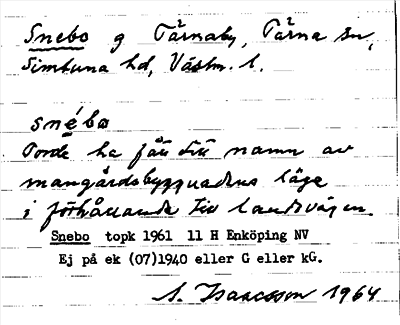 Snebo g Tärnaby, Tärna sn,
Simtuna hd, Västm. l.
snébo
Torde ha fått sitt namn av
mangårdsbyggnadens läge
i förhållande till landsvägen.
Snebo topk 1961 11 H Enköping NV
Ej på ek (07)1940 eller G eller kG.
S. Isaacsson 1964